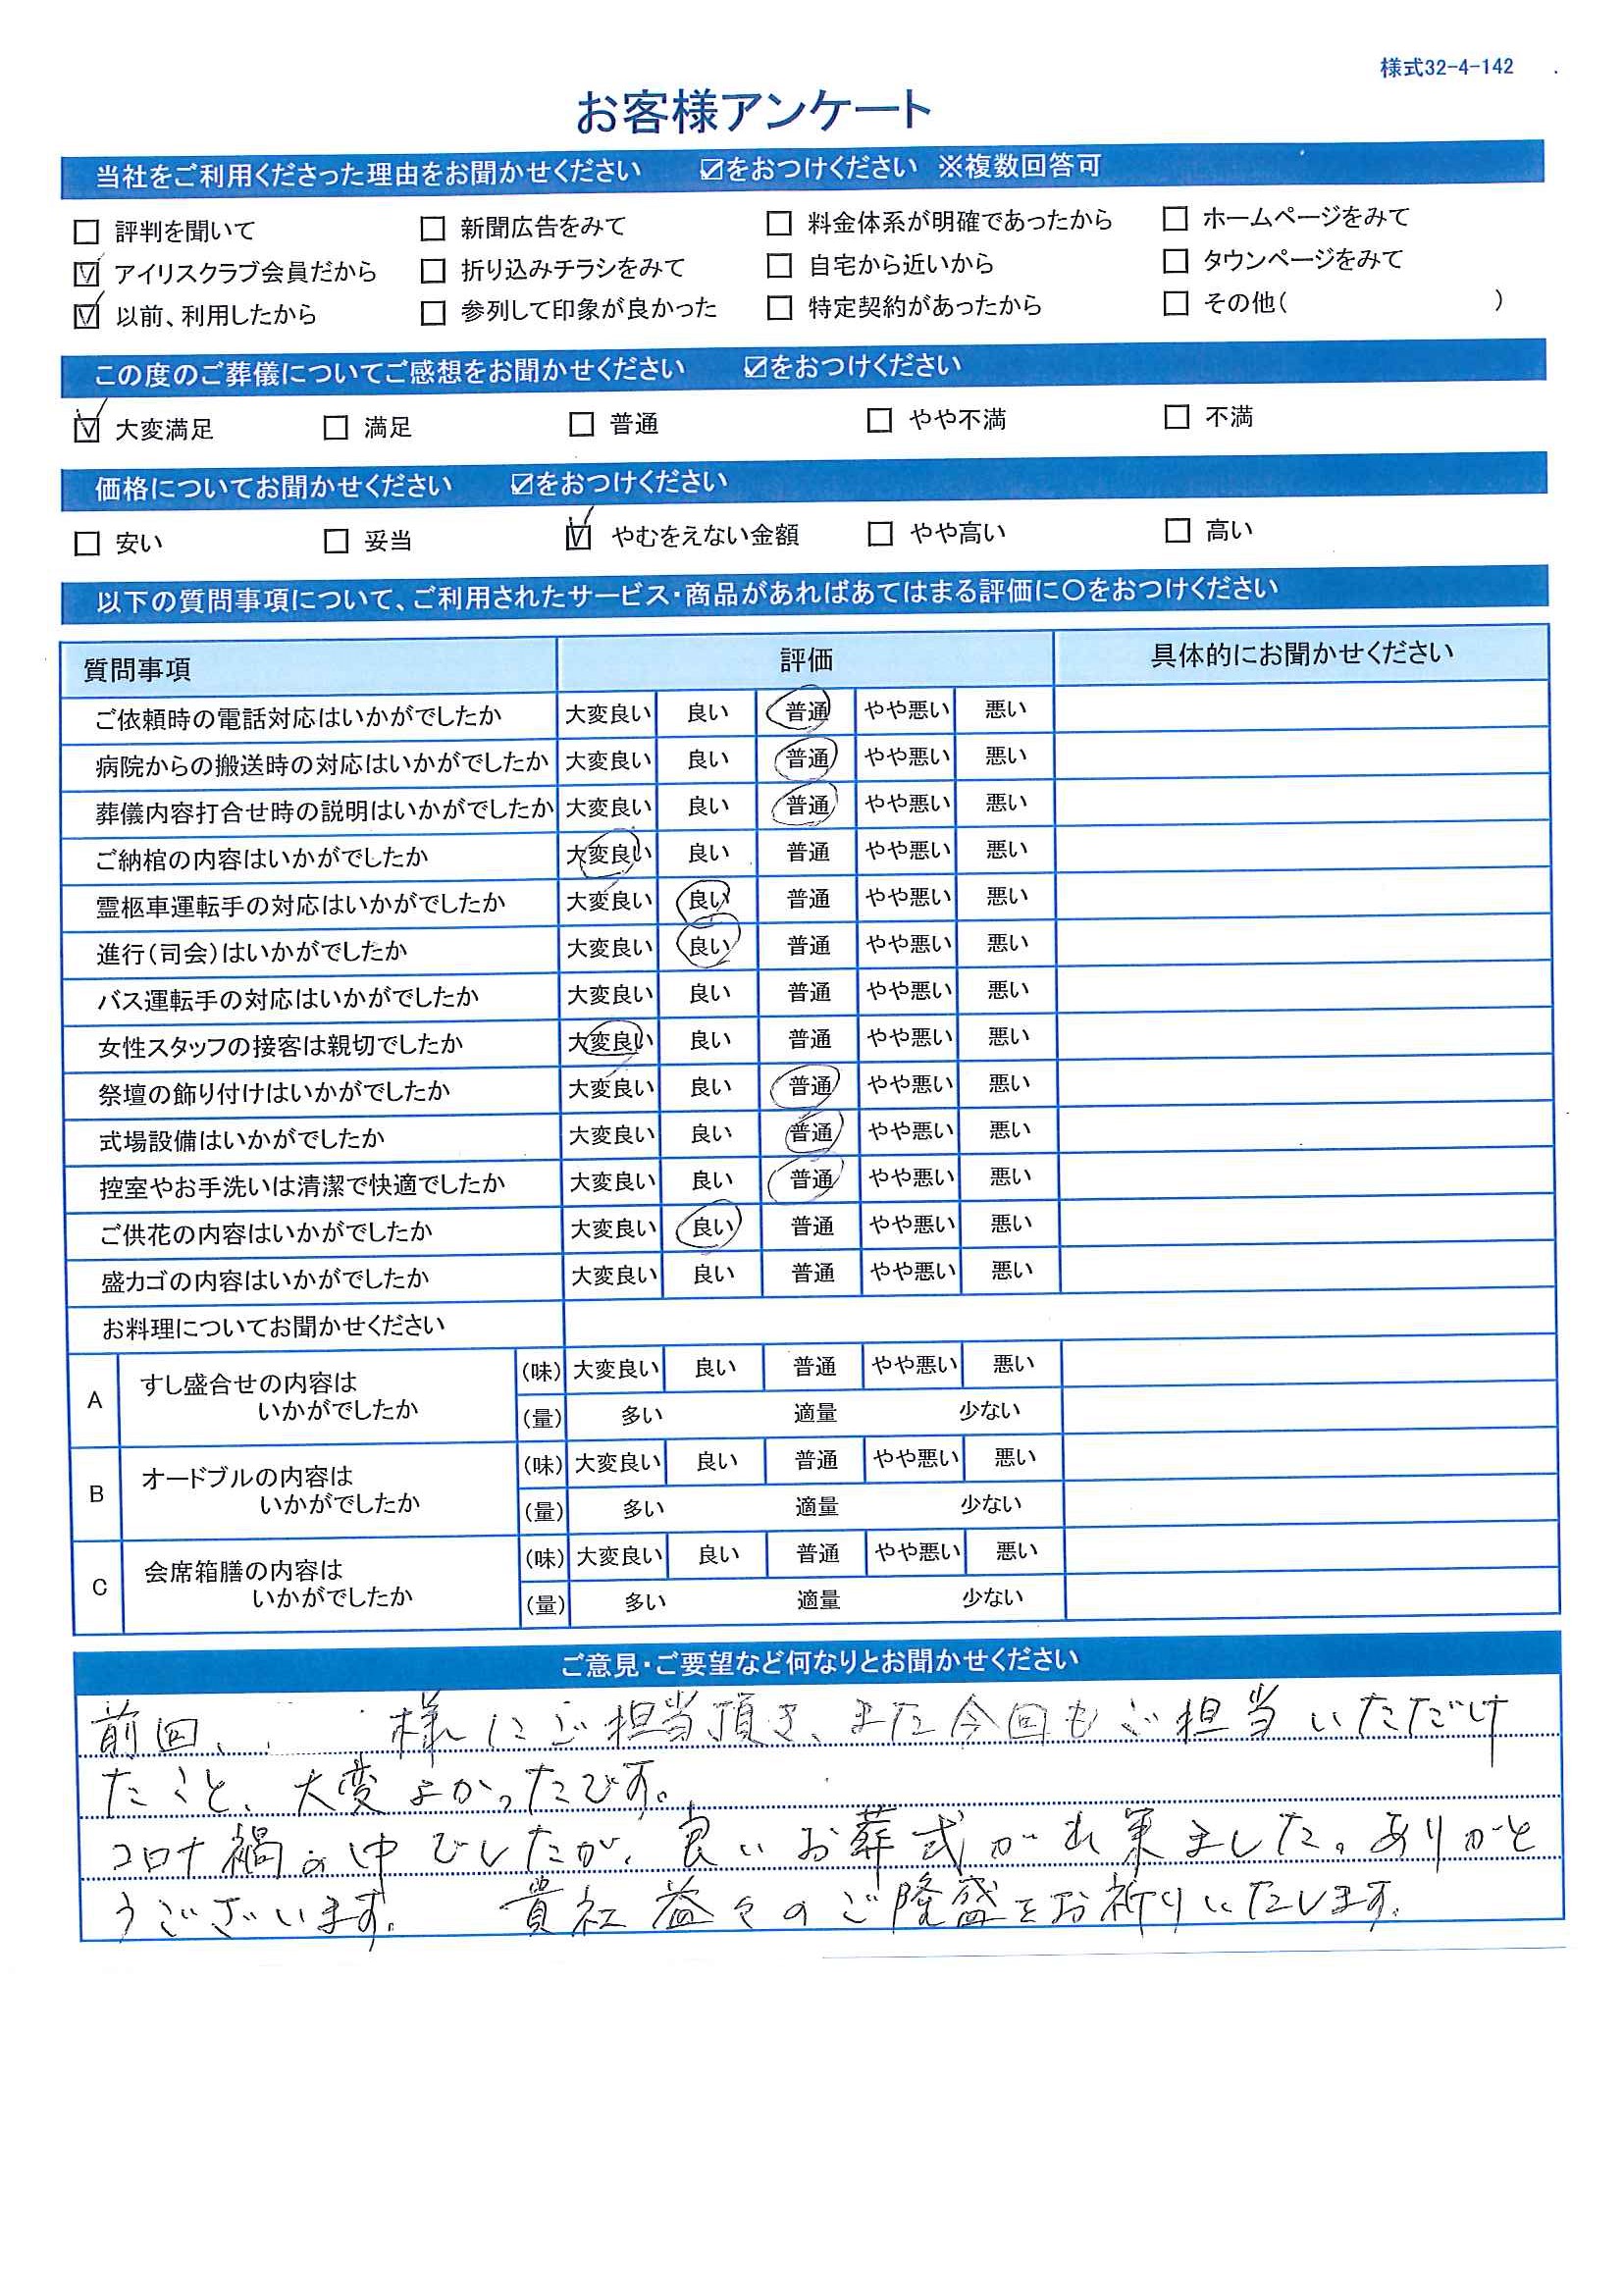 様式32-4-142
お客様アンケート
当社をご利用くださった理由をお聞かせください ☑をおつけください ※複数回答可
□ 評判を聞いて □ 新聞広告をみて □ 料金体系が明確であったから □ ホームページをみて
☑ アイリスクラブ会員だから □ 折り込みチラシをみて □ 自宅から近いから □ タウンページをみて
☑ 以前、利用したから □ 参列して印象が良かった □ 特定契約があったから □ その他( )
この度のご葬儀についてご感想をお聞かせください ☑をおつけください
☑ 大変満足 □ 満足 □ 普通 □ やや不満 □ 不満
価格についてお聞かせください ☑をおつけください
□ 安い □ 妥当 ☑ やむをえない金額 □ やや高い □ 高い
以下の質問事項について、ご利用されたサービス・商品があればあてはまる評価に〇をおつけください
質問事項 評価 具体的にお聞かせください
ご依頼時の電話対応はいかがでしたか 大変良い 良い 普通 やや悪い 悪い
病院からの搬送時の対応はいかがでしたか 大変良い 良い 普通 やや悪い 悪い
葬儀内容打合せ時の説明はいかがでしたか 大変良い 良い 普通 やや悪い 悪い
ご納棺の内容はいかがでしたか 大変良い 良い 普通 やや悪い 悪い
霊柩車運転手の対応はいかがでしたか 大変良い 良い 普通 やや悪い 悪い
進行(司会)はいかがでしたか 大変良い 良い 普通 やや悪い 悪い
バス運転手の対応はいかがでしたか 大変良い 良い 普通 やや悪い 悪い
女性スタッフの接客は親切でしたか 大変良い 良い 普通 やや悪い 悪い
祭壇の飾り付けはいかがでしたか 大変良い 良い 普通 やや悪い 悪い
式場設備はいかがでしたか 大変良い 良い 普通 やや悪い 悪い
控室やお手洗いは清潔で快適でしたか 大変良い 良い 普通 やや悪い 悪い
ご供花の内容はいかがでしたか 大変良い 良い 普通 やや悪い 悪い
盛カゴの内容はいかがでしたか 大変良い 良い 普通 やや悪い 悪い
お料理についてお聞かせください
A すし盛合せの内容は (味) 大変良い 良い 普通 やや悪い 悪い
いかがでしたか (量) 多い 適量 少ない
B オードブルの内容は (味) 大変良い 良い 普通 やや悪い 悪い
いかがでしたか (量) 多い 適量 少ない
C 会席箱膳の内容は (味) 大変良い 良い 普通 やや悪い 悪い
いかがでしたか (量) 多い 適量 少ない
ご意見・ご要望など何なりとお聞かせください
前回、 様にご担当頂き、また今回もご担当いただけ
たこと、大変よかったです。
コロナ禍の中でしたが、良いお葬式が出来ました。ありがと
うございます。 貴社益々のご隆盛をお祈りいたします。